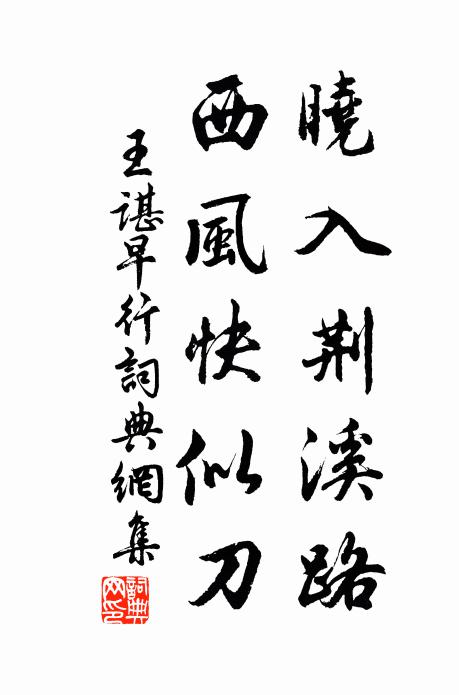 曉入荆溪路
西風快似刀
王諶早行詞典網集
詞典網印